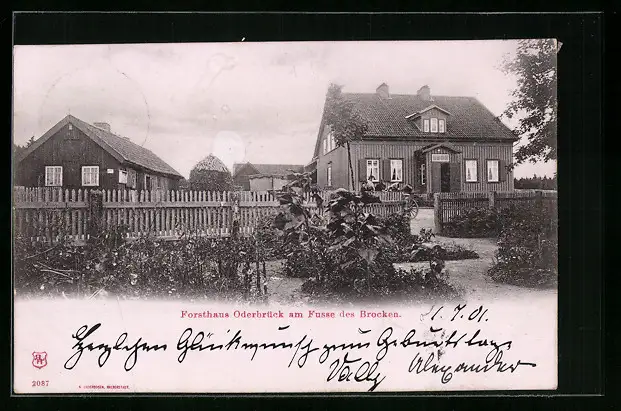 Forsthaus Oderbrück am Fusse des Brocken.
1.7.01.
Herzlichen Glückwunsch zum Geburtstag
Wally Alexander
2087